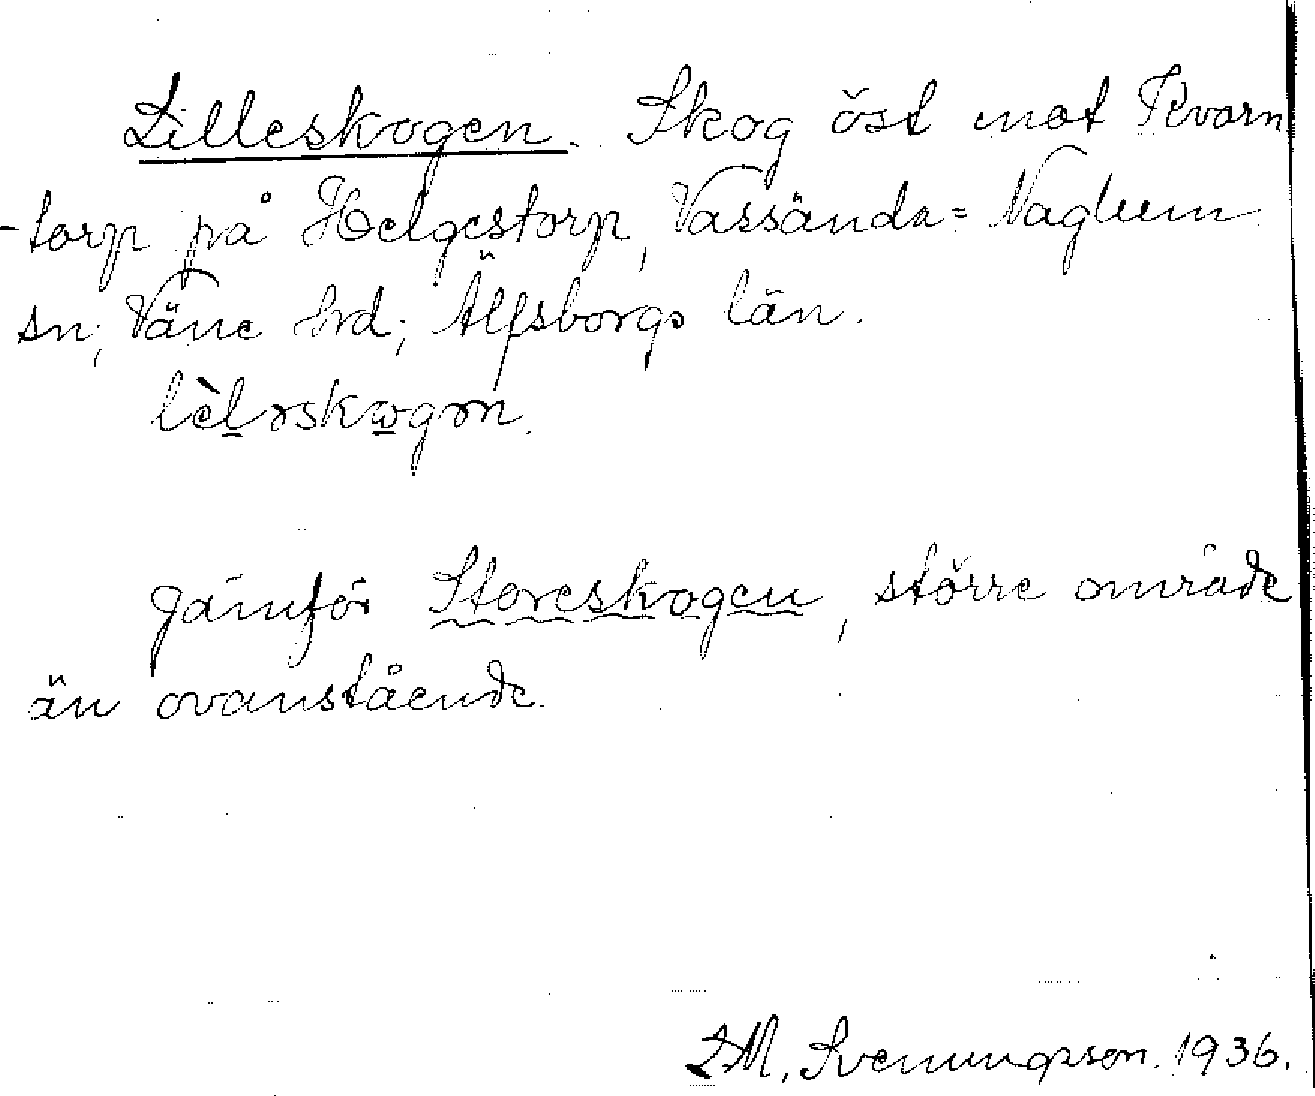 Lilleskogen. Skog öst mot Kvarn
-torp på Helgestorp, Vassända=Naglum
sn; Väne hrd; Älfsborgs län.
lèl̲əskɷ̲gən.
Jämför Storeskogen, större område
än ovanstående.
L.M. Svenungsson. 1936.